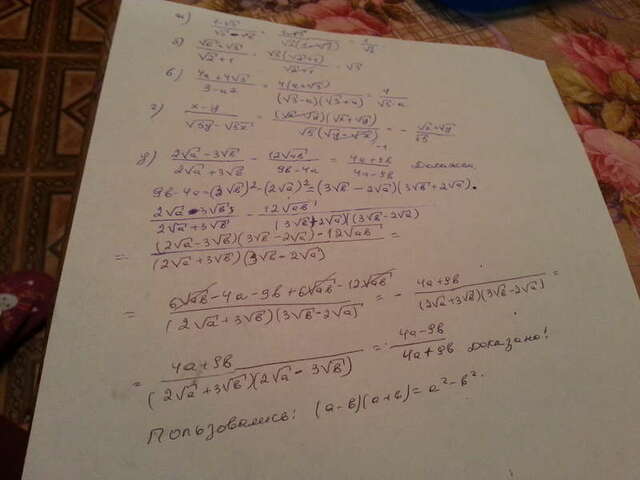 б) (√6+√3)/(√2+1) = √3(√2+1)/(√2+1) = √3
в) (4a+4√3)/(3-a²) = 4(a+√3)/((√3-a)(√3+a)) = 4/(√3-a)
г) (x-y)/(√5y-√5x) = (√x-√y)(√x+√y)/(√5(√y-√x)) = -(√x+√y)/√5
д) (2√a-3√b)/(2√a+3√b) - 12√ab/(9b-4a) = (4a+9b)/(4a-9b)
9b-4a=(3√b)²-(2√a)²=(3√b-2√a)(3√b+2√a).
(2√a-3√b)/(2√a+3√b) - 12√ab/((3√b+2√a)(3√b-2√a))
= ((2√a-3√b)(3√b-2√a)-12√ab)/((2√a+3√b)(3√b-2√a)) =
= (6√ab-4a-9b+6√ab-12√ab)/((2√a+3√b)(3√b-2√a)) = -(4a+9b)/((2√a+3√b)(3√b-2√a)) =
= (4a+9b)/((2√a+3√b)(2√a-3√b)) = (4a-9b)/(4a+9b) Доказано!
Пользовались: (a-b)(a+b)=a²-b².